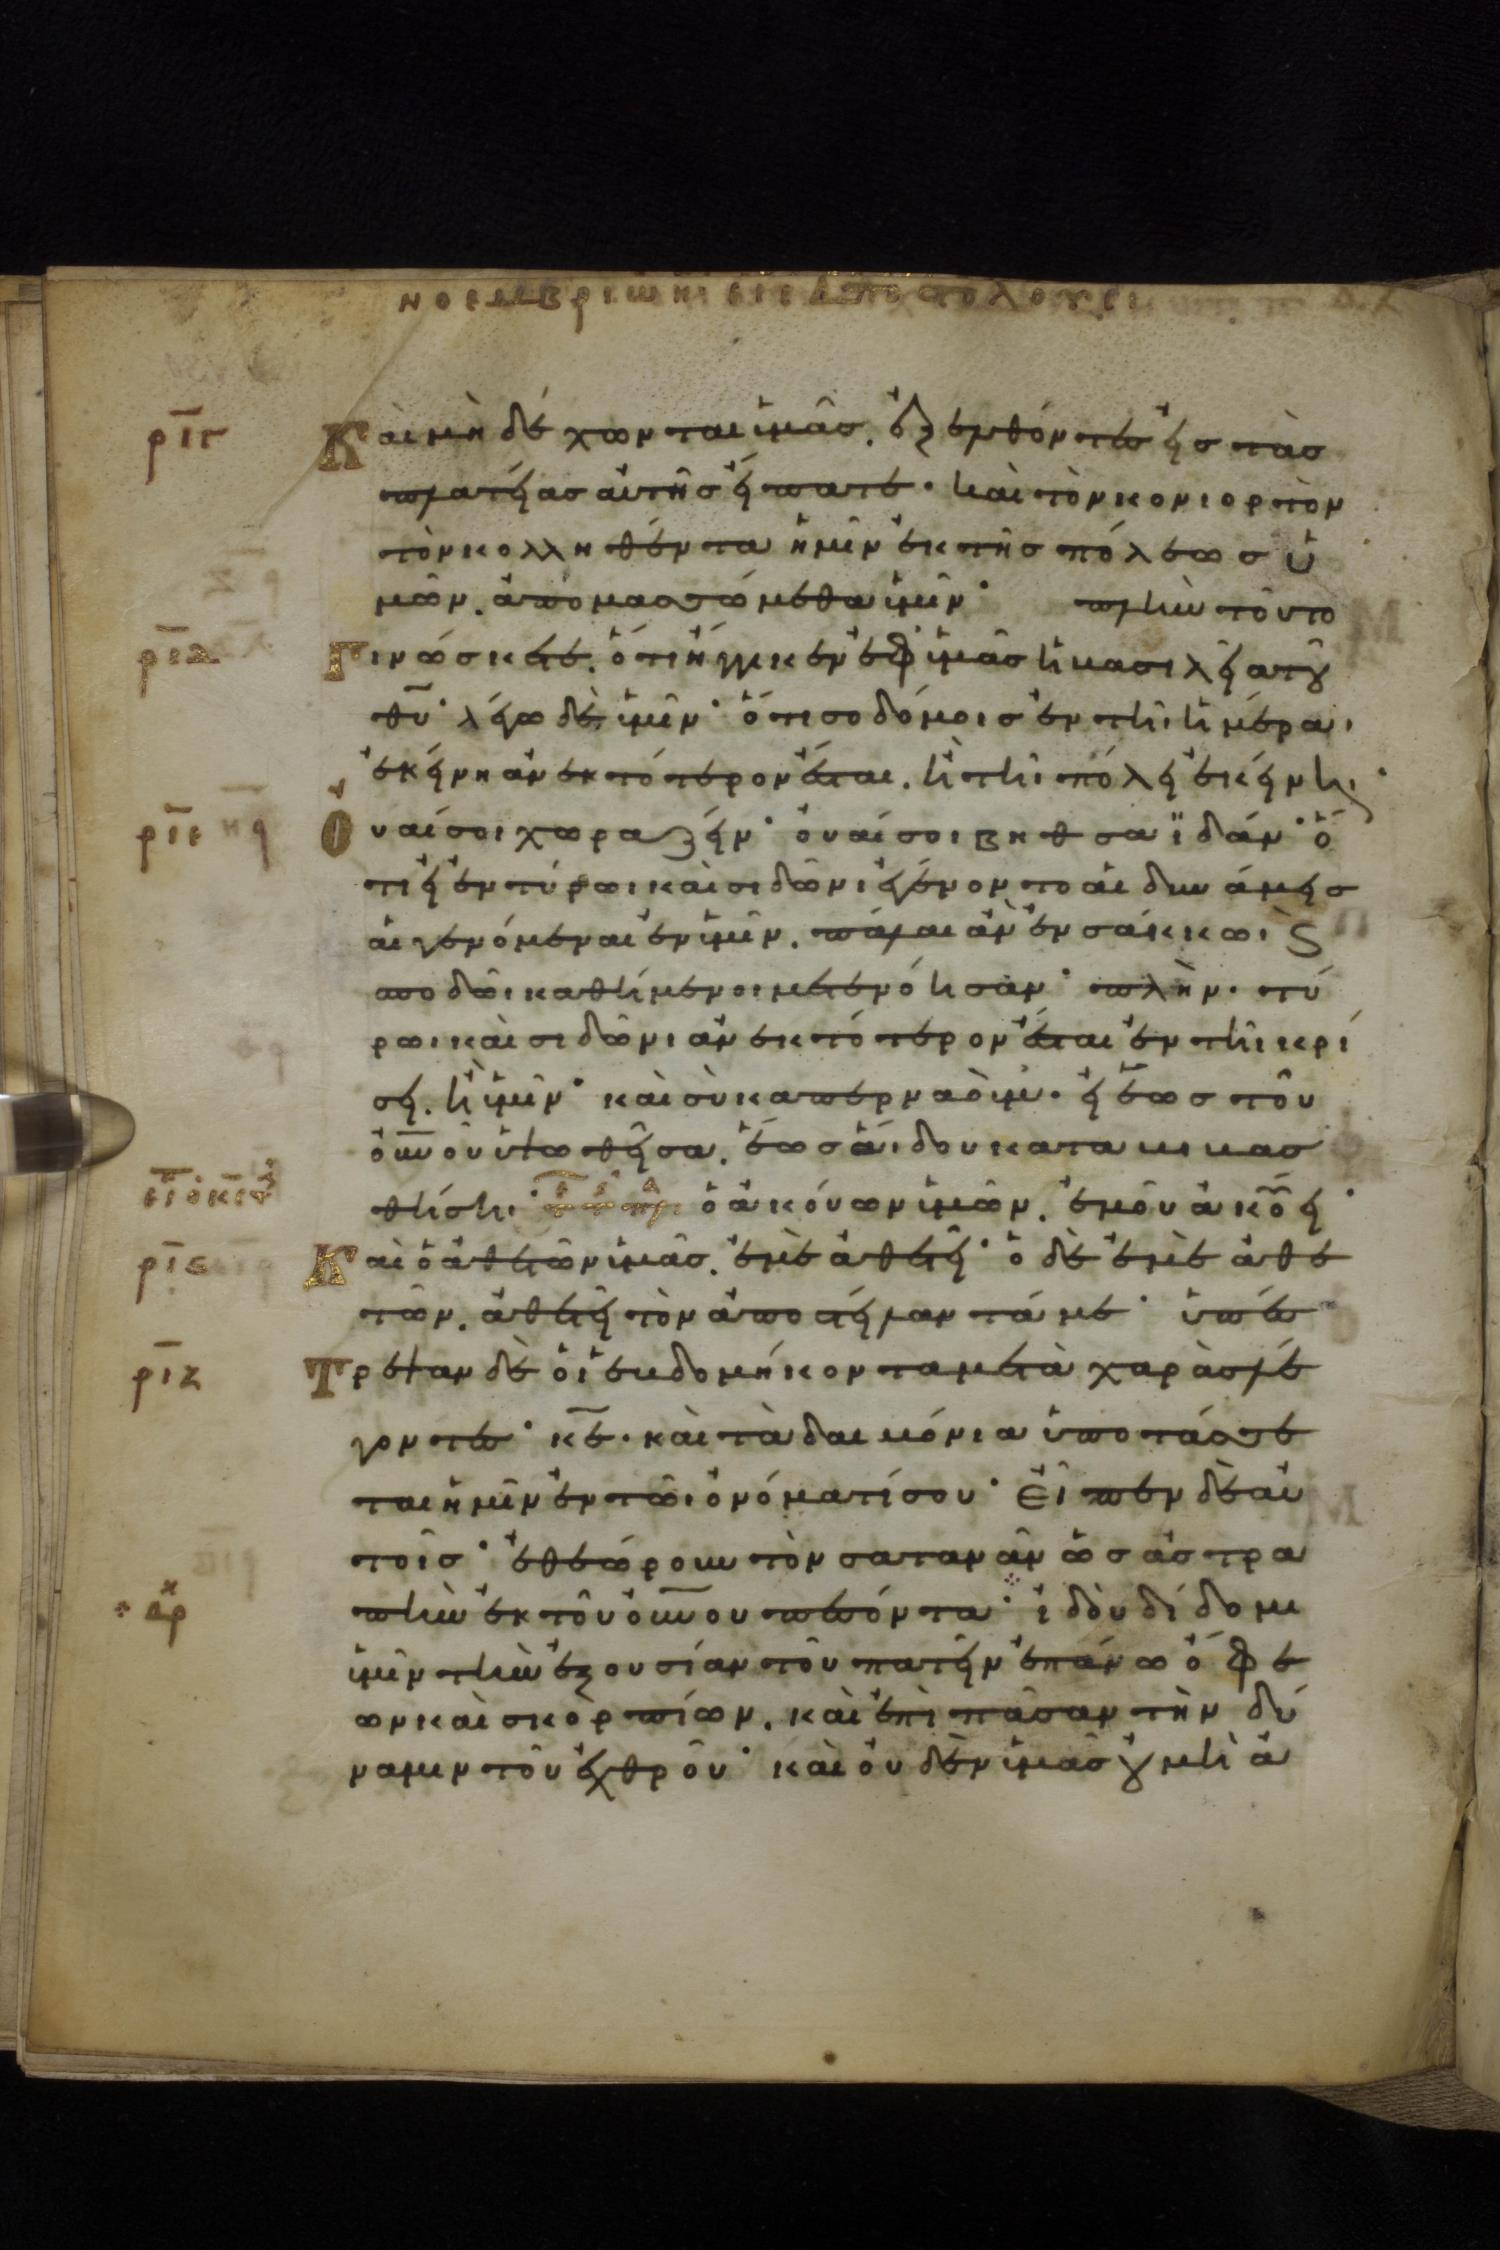 ριγ
Καὶ μὴ δέχωνται ὑμᾶς. ἐξελθόντες εἰς τὰς
πλατείας αὐτῆς εἴπατε· καὶ τὸν κονιορτὸν
τὸν κολληθέντα ἡμῖν ἐκ τῆς πόλεως ὑ
μῶν. ἀπομασσώμεθα ὑμῖν· πλὴν τοῦτο
ριδ
Γινώσκετε. ὅτι ἤγγικεν ἐφ ὑμᾶς ἡ βασιλεία τοῦ
θυ· λέγω δὲ ὑμῖν· ὅτι σοδόμοις ἐν τῆι ἡμέραι
ἐκείνη ἀνεκτότερον ἔσται. ἢ τῆι πόλει ἐκείνηι·
ριε
Οὐαί σοι χωραζείν· οὐαί σοι βηθσαϊδάν· ὅ
τι εἰ ἐν τύρωι καὶ σιδῶνι ἐγένοντο αἱ δυνάμεις
αἱ γενόμεναι ἐν ὑμῖν. πάλαι ἂν ἐν σάκκωι ϗ
σποδῶι καθήμενοι μετενόησαν· πλὴν· τύ
ρωι καὶ σιδῶνι ἀνεκτότερον ἔσται ἐν τῆι κρί
σει. ἢ ὑμῖν· καὶ σὺ καπερναούμ· ἡ ἕως τοῦ
οὐνοῦ ὑψωθεῖσα. ἕως ἅιδου καταβιβασ
θήσηι· ὁ ἀκούων ὑμῶν. ἐμοῦ ἀκούει·
ριϛ
Καὶ ὁ ἀθετῶν ὑμᾶς. ἐμὲ ἀθετεῖ· ὁ δὲ ἐμὲ ἀθε
τῶν. ἀθετεῖ τὸν ἀποστείλαντά με· ὑπέσ
ριζ
Τρεψαν δὲ οἱ ἑβδομήκοντα μετὰ χαρὰς λέ
γοντες· κε· καὶ τὰ δαιμόνια ὑποτάσσε
ται ἡμῖν ἐν τῶι ὀνόματί σου· Εἶπεν δὲ αὐ
τοῖς· ἐθεώρουν τὸν σατανᾶν ὡς ἀστρα
πὴν ἐκ τοῦ οὐνου πεσόντα· ἰδοὺ δίδωμι
ὑμῖν τὴν ἐξουσίαν τοῦ πατεῖν ἐπάνω ὄφε
ων καὶ σκορπίων. καὶ ἐπὶ πᾶσαν τὴν δύ
ναμιν τοῦ ἐχθροῦ· καὶ οὐδὲν ὑμᾶς οὐ μὴ ἀ